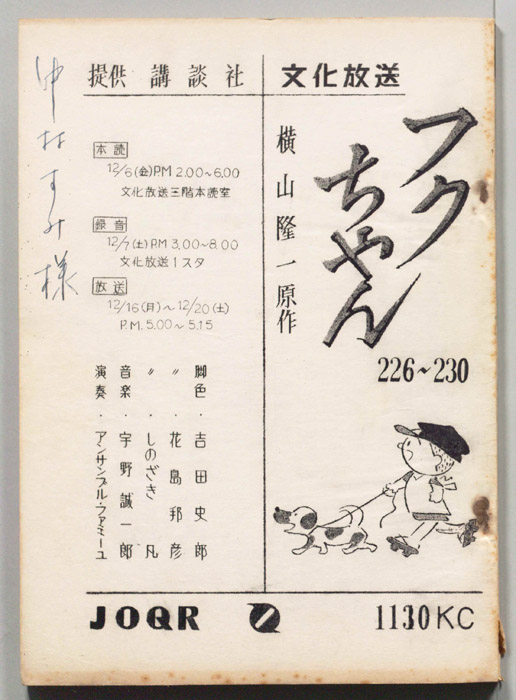 文化放送
提供 講談社
フクちゃん
横山隆一原作
226~230
本読
12/6(金)PM 2.00~6.00
文化放送三階本読室
録音
12/7(土)P.M 3.00~8.00
文化放送1スタ
放送
12/16(月)~12/20(土)
P.M. 5.00~5.15
脚色・吉田史郎
〃・花島邦彦
〃・しのざき凡
音楽・宇野誠一郎
演奏・アンサンブル・ファミーユ
中村すみ様
JOQR
1130KC